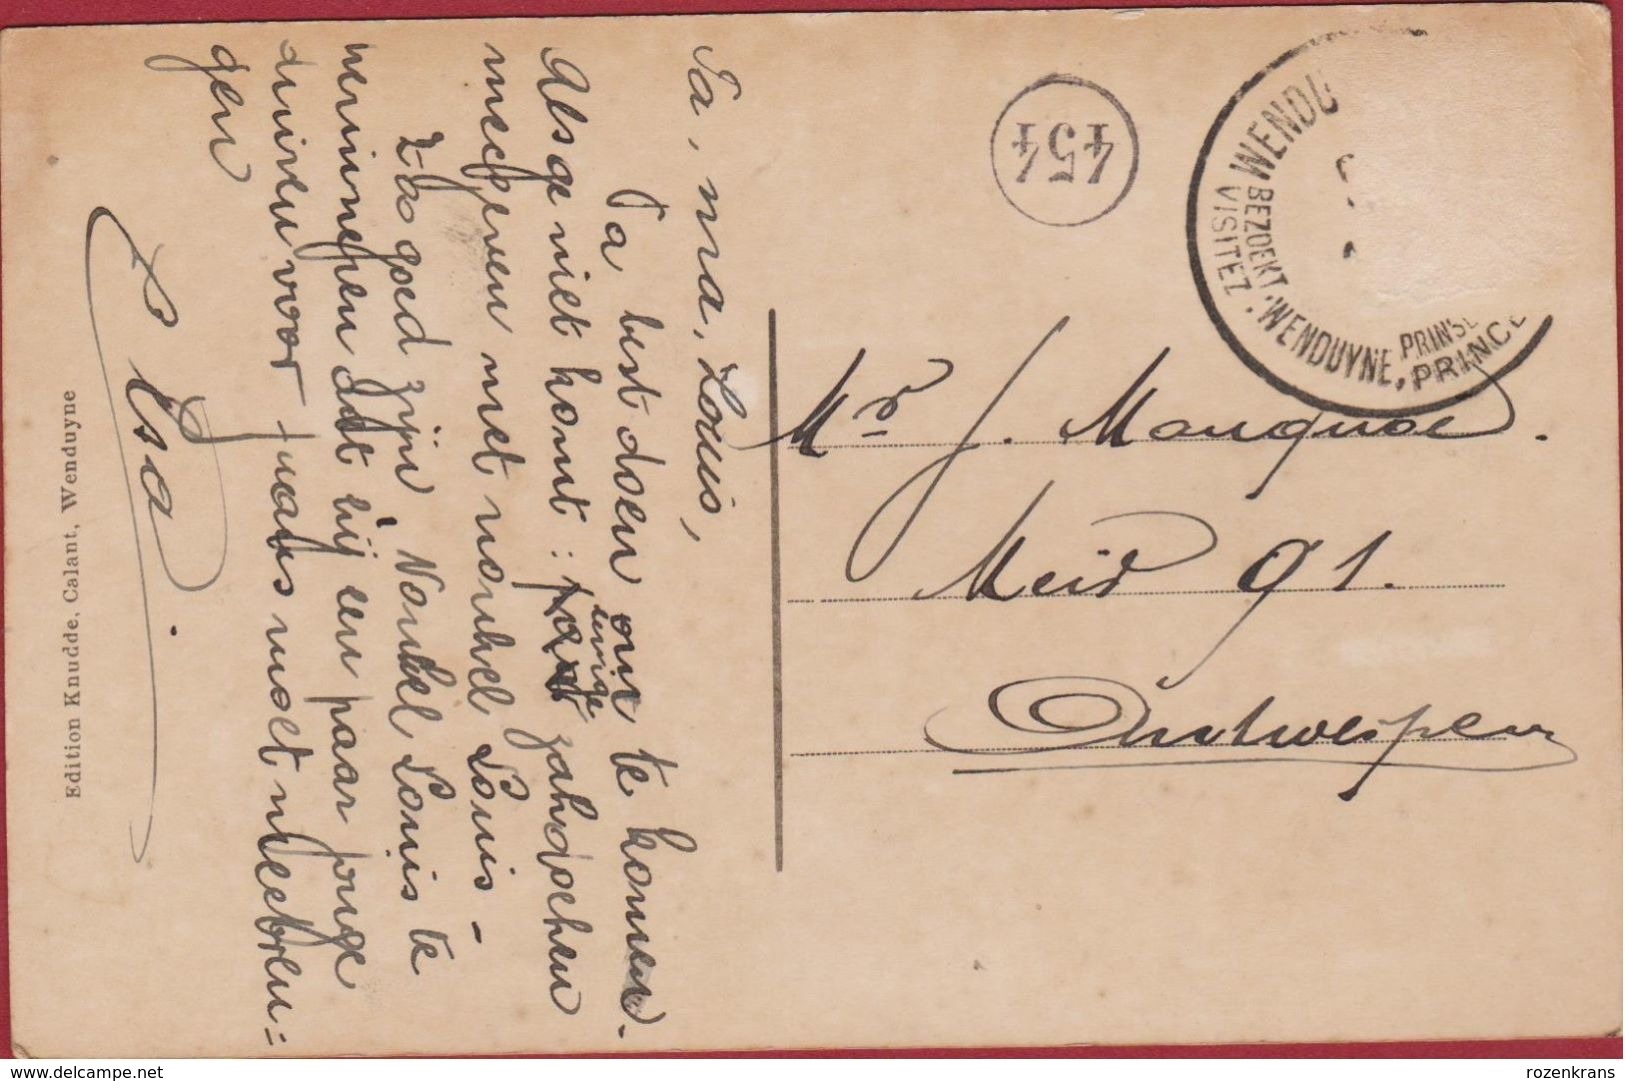 Pa, ma, Louis,
Pa best doen om te komen.
Als ge niet komt : enige zakdoeken
meegeven met nonkel Louis –
Zoo goed zijn, Nonkel Louis te
herinneren dat hij een paar jonge
duiven voor jaaks moet meebren=
gen
Elsa.
Edition Knudde, Calant, Wenduyne
454
WENDU
BEZOEKT . WENDUYNE, PRINSE
VISITEZ . PRINCE
Mr J. Manguoe.
Meir 91.
Antwerpen
delcampe.net
rozenkrans